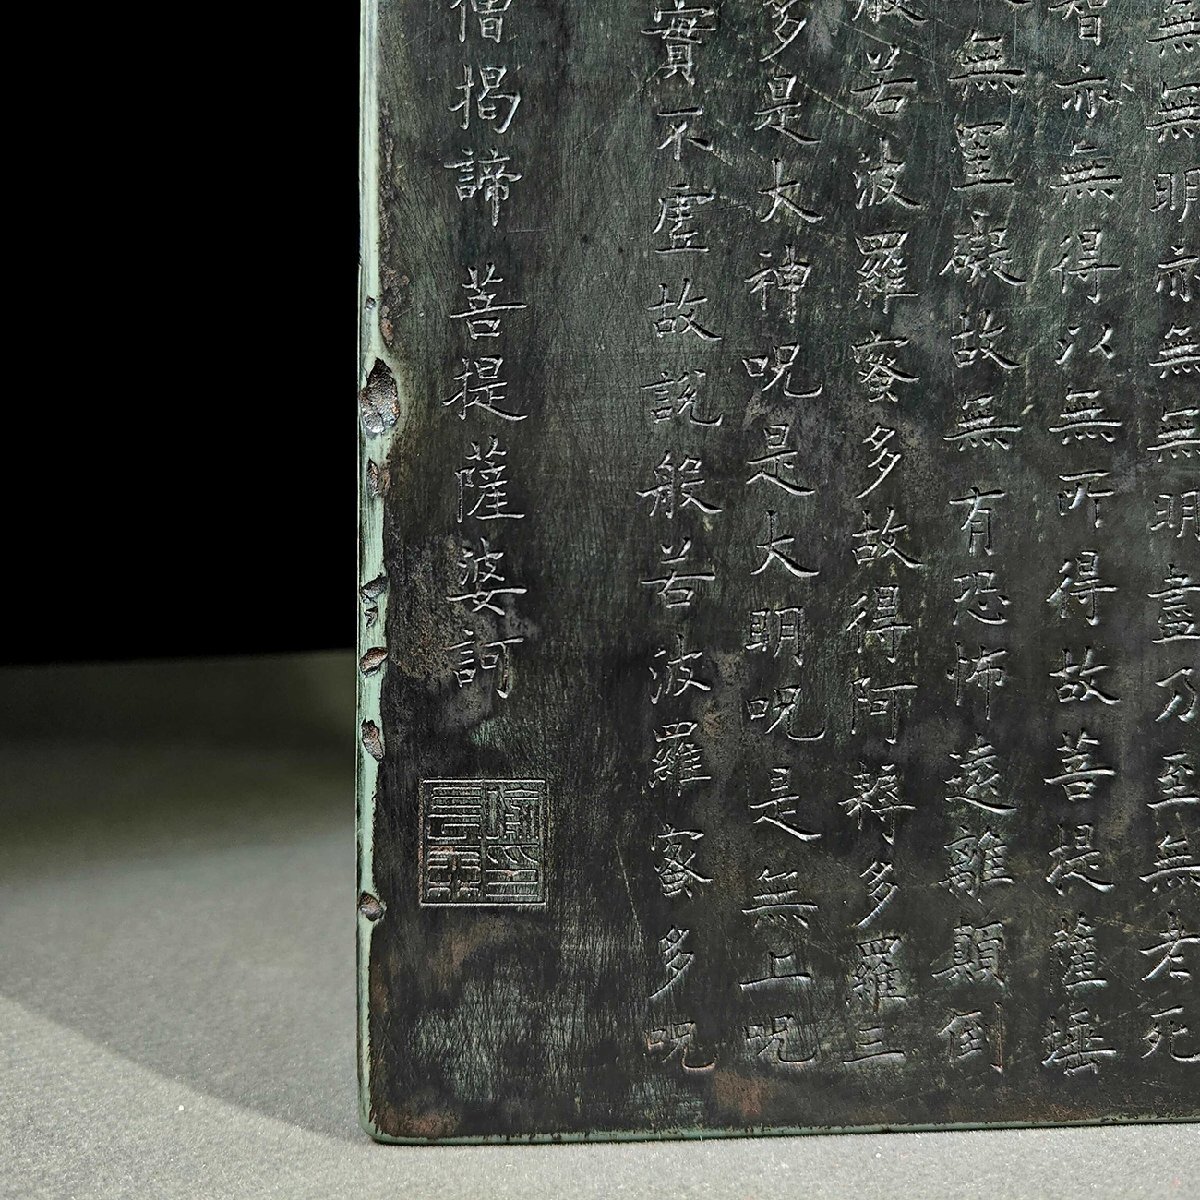 無無明亦無無明盡乃至無老死
智亦無得以無所得故菩提薩埵
無罣礙故無有恐怖遠離顛倒
般若波羅蜜多故得阿耨多羅三
多是大神呪是大明呪是無上呪
實不虛故說般若波羅蜜多呪
僧揭諦菩提薩婆訶